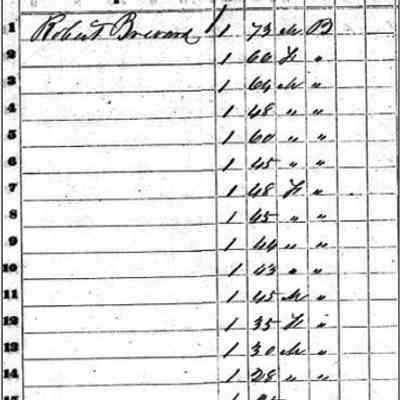 1 Robert Brevard 1 73 M B
2 1 60 F "
3 1 64 M "
4 1 48 " "
5 1 60 " "
6 1 45 " "
7 1 48 F "
8 1 45 " "
9 1 44 " "
10 1 43 " "
11 1 45 M "
12 1 35 F "
13 1 30 M "
14 1 28 " "
15 1